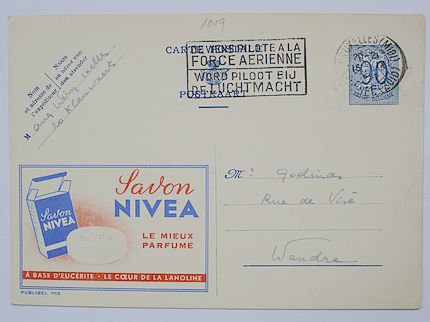 1019
CARTE POSTALE
DEVENEZ PILOTE A LA
FORCE AERIENNE
WORD PILOOT BIJ
DE LUCHTMACHT
POSTKAART
BRUXELLES (MIDI)
90
Nom
et adresse de
l'expéditeur
Naam
en adres van
den afzender
Savon
NIVEA
Savon
NIVEA
NIVEA
LE MIEUX
PARFUMÉ
À BASE D'EUCÉRITE - LE CŒUR DE LA LANOLINE
PUBLIBEL 1113
M. Godinas
Rue de Visé
Wandre